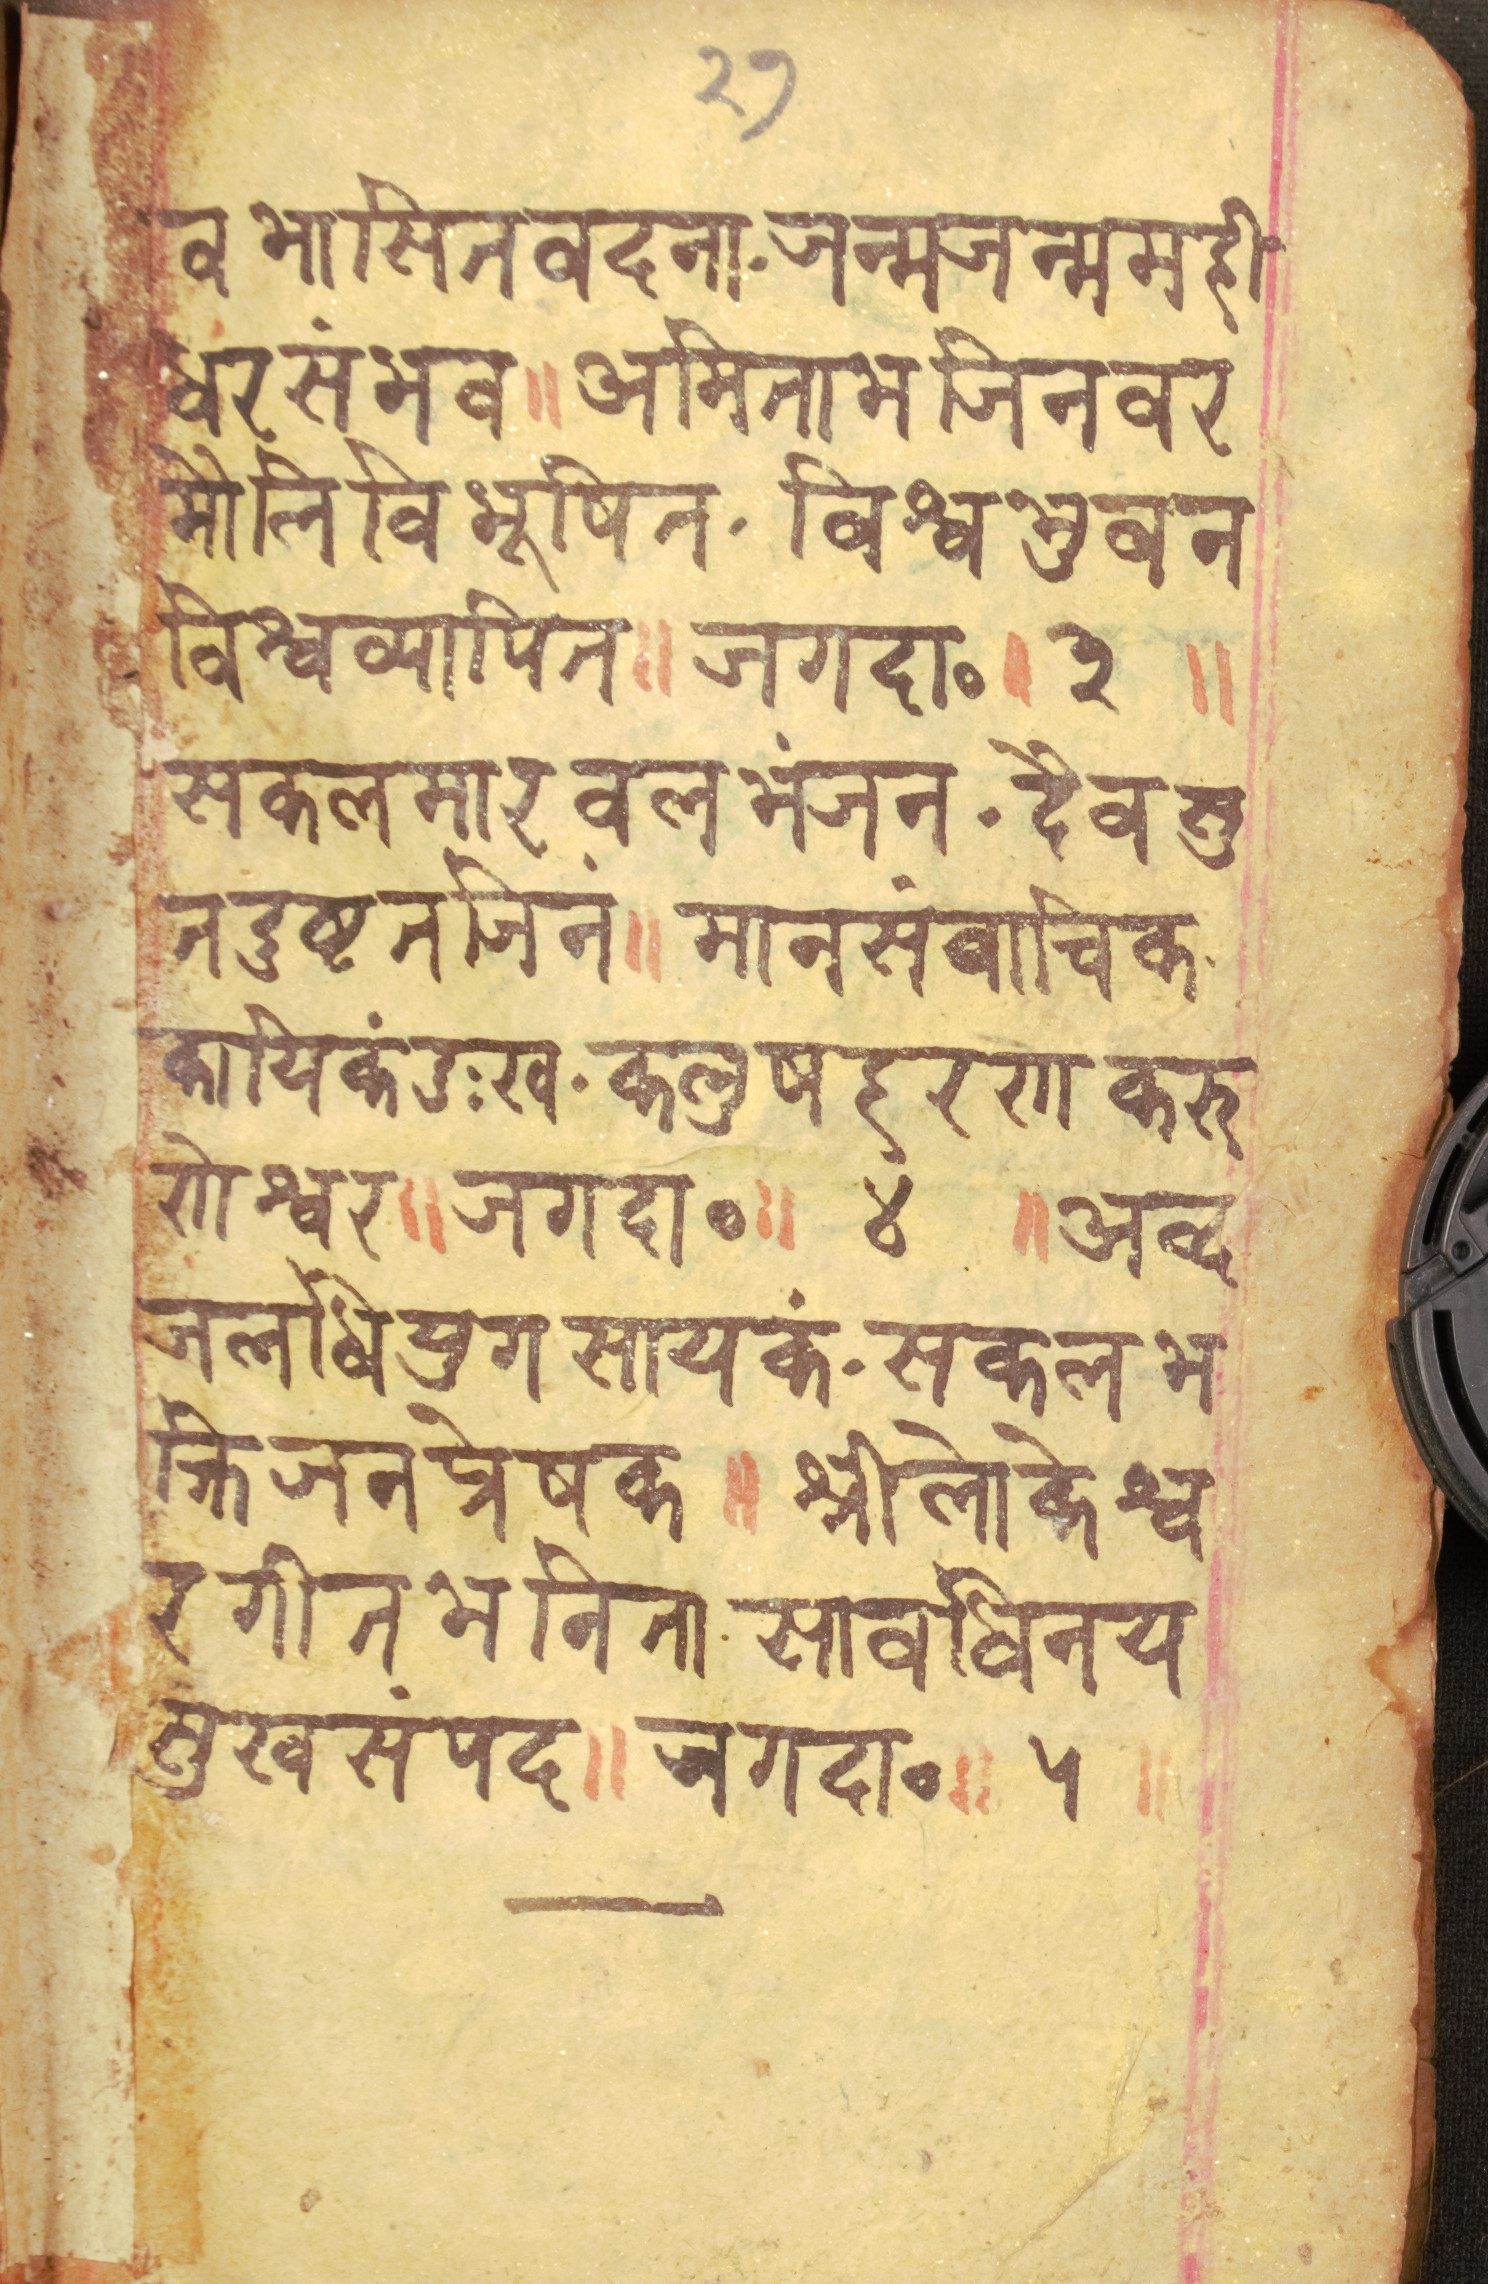 २७
व भासितवदना · जन्मजन्ममही
धरसंभव ॥ अमिताभजिनवर
मौलिंविभूषित · विश्वभुवन
विश्वव्यापित ॥ जगदा० ॥ ३ ॥
सकलमारवलभंजन · दैवसु
तदुष्टतर्जितं ॥ मानसंवाचिक
कायिकंदुःख · कलुषहरणकरु
णेश्वर ॥ जगदा० ॥ ४ ॥ अव्द
जलधियुगसायकं · सकलभ
क्तिजनप्रेषक ॥ श्रीलोकेश्व
रगीतभनिता · सावधिनय
सुखसंपद ॥ जगदा० ॥ ५ ॥